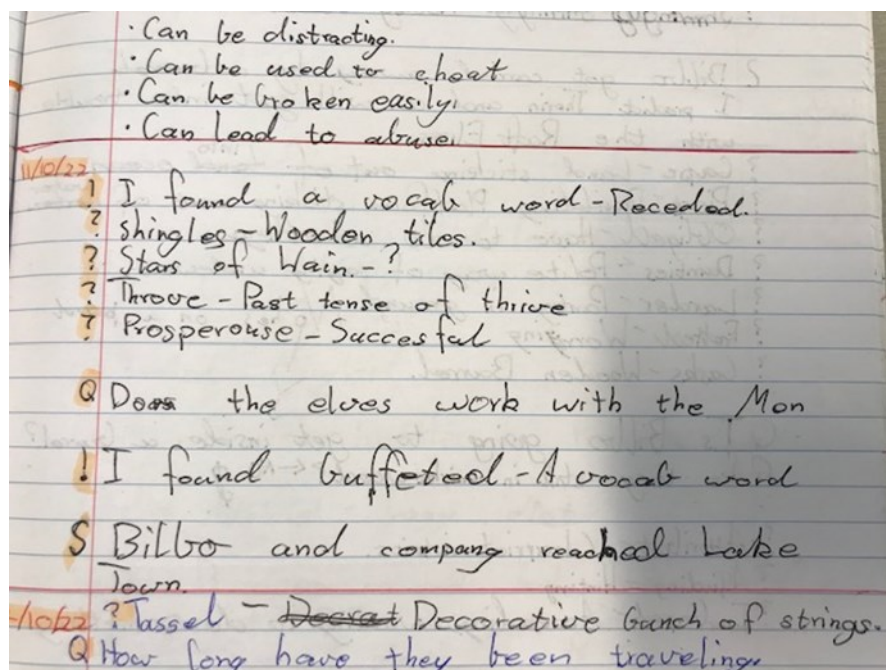 · Can be distracting.
· Can be used to cheat
· Can be broken easily.
· Can lead to abuse.
11/10/22
! I found a vocab word - Receded.
? shingles - Wooden tiles.
? Stars of Wain. - ?
? Throve - Past tense of thrive
? Prosperouse - Succesful
Q Does the elves work with the Men
! I found buffeted - A vocab word
S Bilbo and company reached Lake
Town.
/10/22 ? Tassel - Decorative bunch of strings.
Q How long have they been traveling